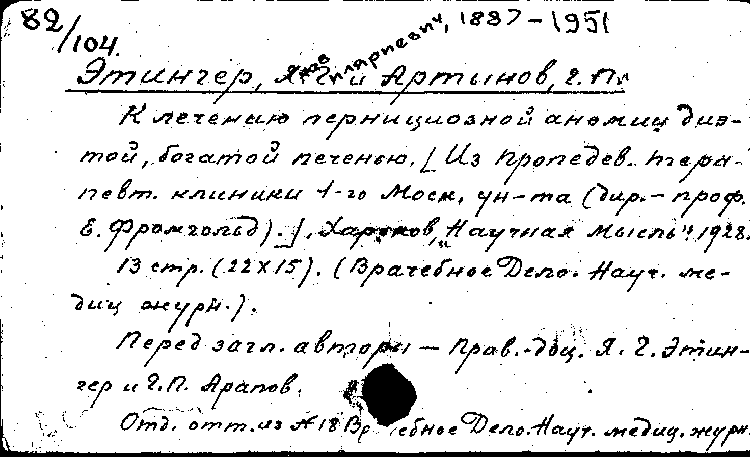 82/104.
Яков Гиляриевич, 1887-1951
Этингер, Я. Г. и Артынов, Г. П.
К лечению пернициозной анемии дие-
той, богатой печенью. [Из пропедев. тера-
певт. клиники 1-го Моск. ун-та (дир. - проф.
Е. Фромгольд).]. Харьков, "Научная мысль". 1928.
13 стр. (22х15). (Врачебное Дело. Науч. ме-
диц журн.).
Перед загл. авторы - Прив.-доц. Я. Г. Этин-
гер и Г.П. Арапов.
Отд. отт. из №18 Вр ебное Дело. Науч. медиц. журн.